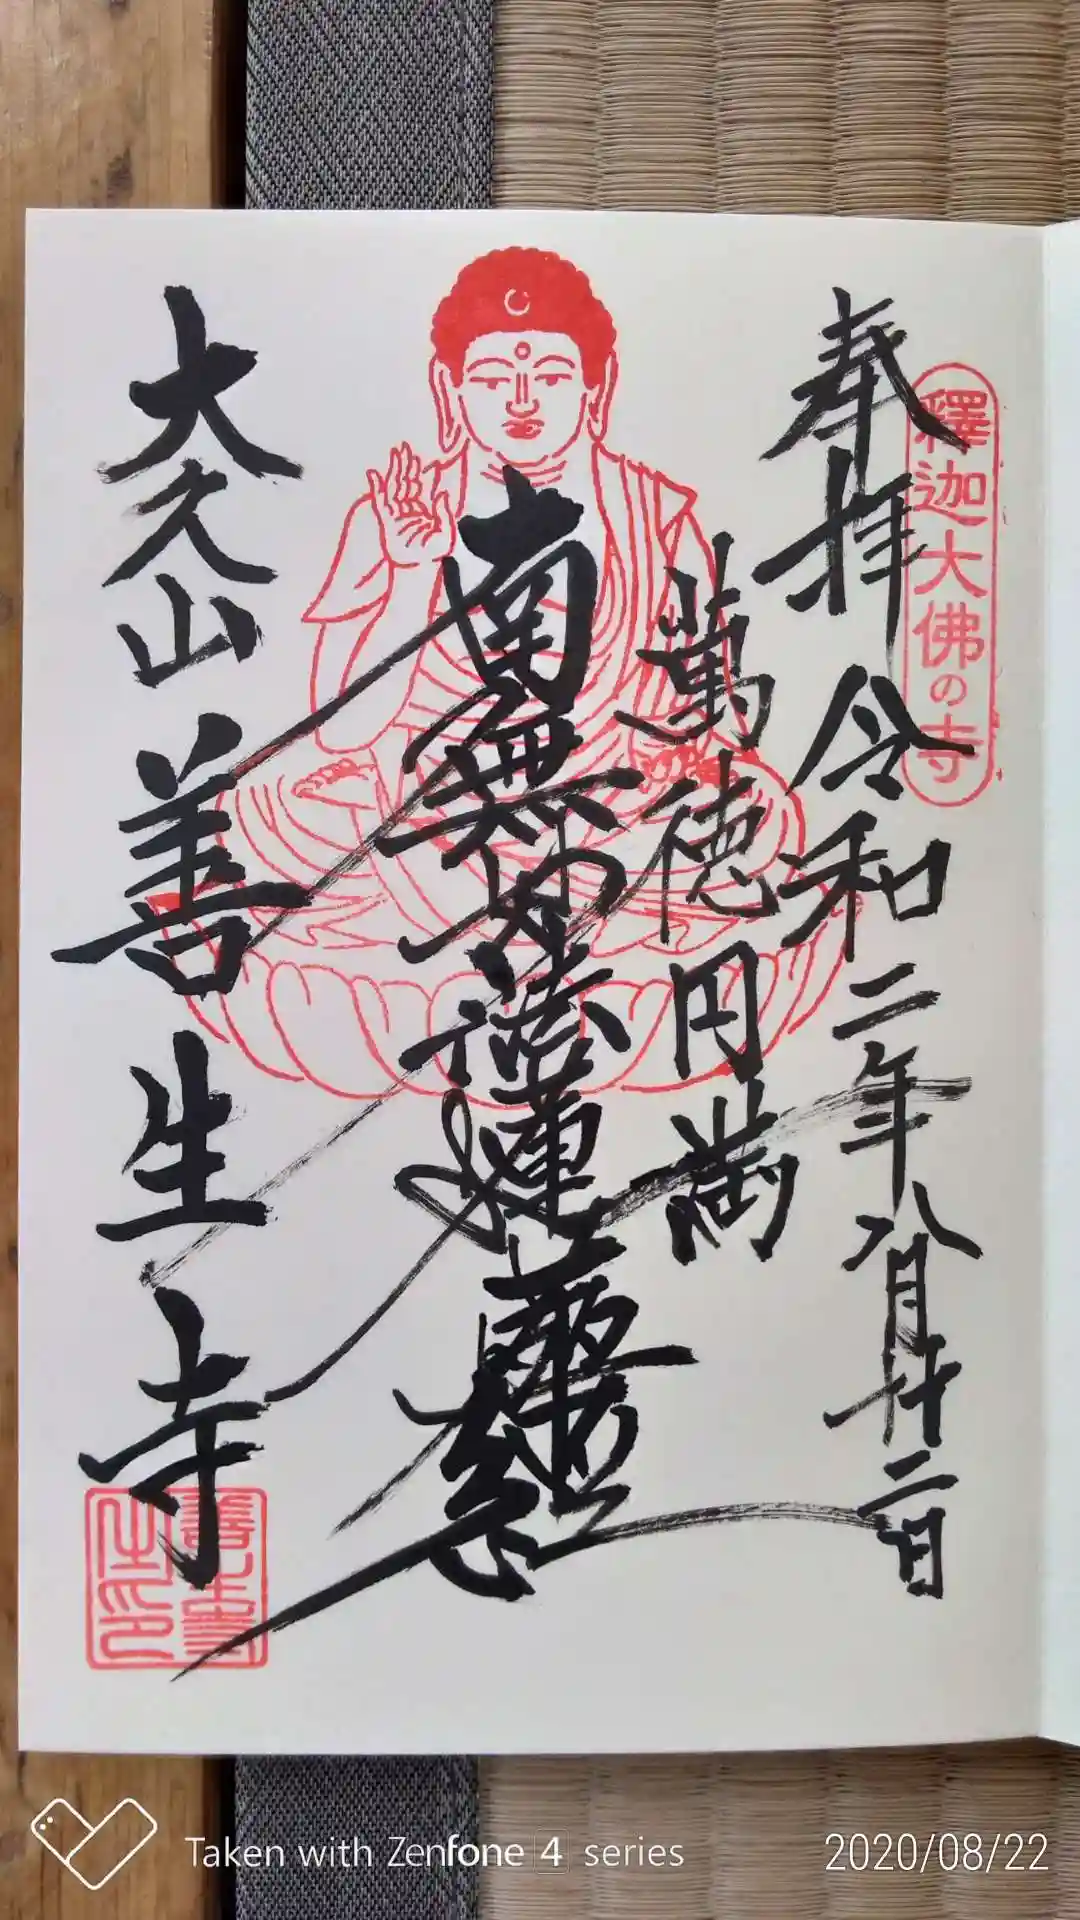 釋迦大佛の寺
奉拝 令和二年八月廿二日
萬徳円満
南無妙法蓮華経
大久山 善生寺
善生寺
Taken with Zenfone 4 series
2020/08/22